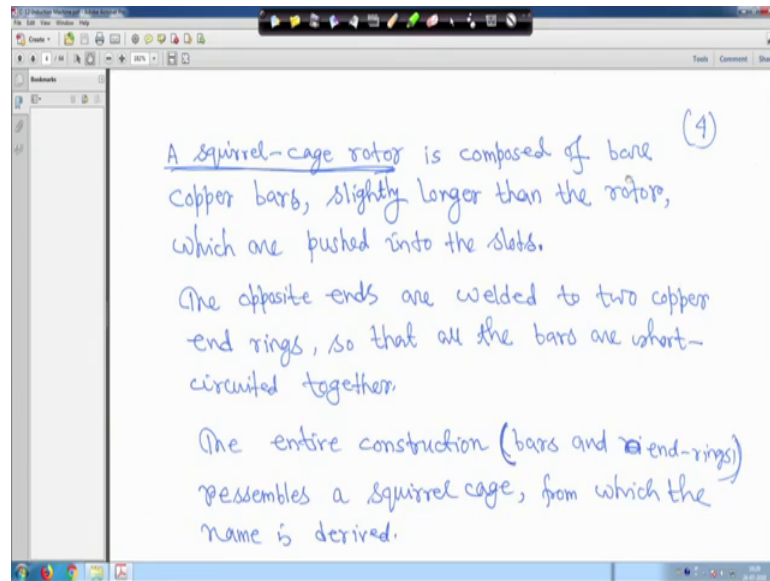 C-12 Induction Machine.pdf - Adobe Acrobat Pro
File Edit View Window Help
Create
4 / 94
182%
Tools Comment Share
Bookmarks
(4)
A squirrel-cage rotor is composed of bare
copper bars, slightly longer than the rotor,
which are pushed into the slots.
The opposite ends are welded to two copper
end rings, so that all the bars are short-
circuited together.
The entire construction (bars and end-rings)
ressembles a squirrel cage, from which the
name is derived.